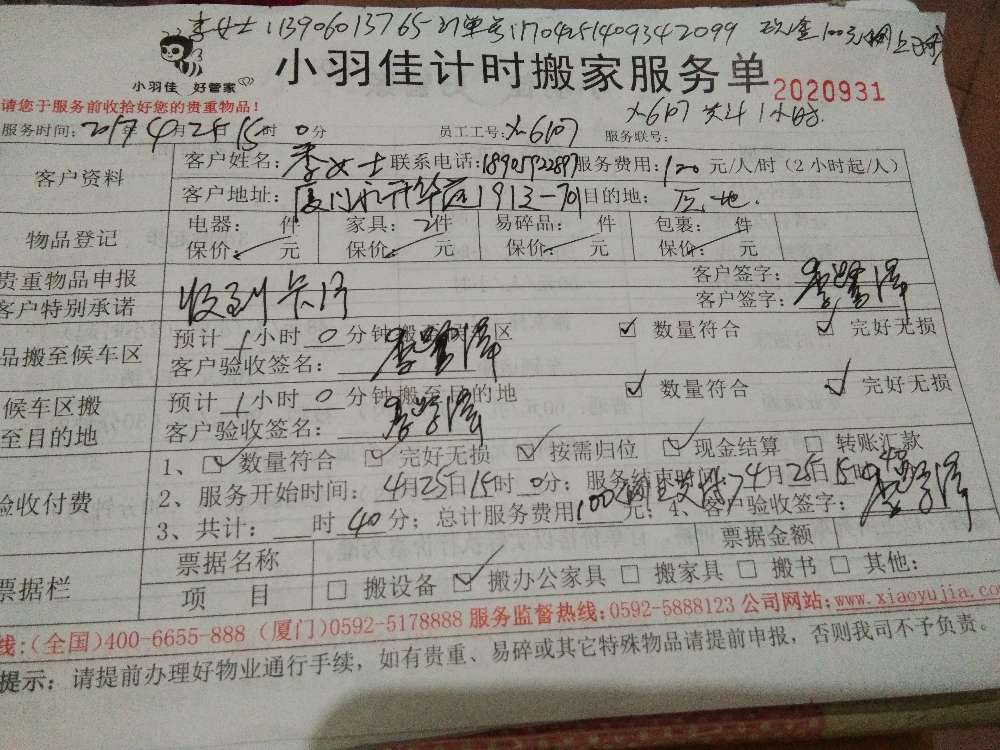 李女士:13906013765-订单号:1704251409342099 现金100元(网上支付)
小羽佳 好管家
小羽佳计时搬家服务单 2020931
请您于服务前收拾好您的贵重物品!
x6107 共计1小时.
服务时间:2017年4月25日15时0分 员工工号:x6107 服务联号:
客户资料 客户姓名:李女士 联系电话:18905922897 服务费用:120元/人/时(2小时起/人)
客户地址:厦门 1913-701 目的地:元地.
物品登记 电器: 件 家具:2件 易碎品: 件 包裹: 件
保价: 元 保价: 元 保价: 元 保价: 元
贵重物品申报 收到 客户签字:
客户特别承诺 客户签字:
品搬至候车区 预计1小时0分钟搬至候车区 ☑数量符合 ☑完好无损
客户验收签名:
候车区搬至目的地 预计1小时0分钟搬至目的地 ☑数量符合 ☑完好无损
客户验收签名:
验收付费 1、☑数量符合 ☑完好无损 ☑按需归位 ☑现金结算 □转账汇款
2、服务开始时间:4月25日15时0分;服务结束时间:4月25日15时40
3、共计: 时40分;总计服务费用100(网上支付)元;4、客户验收签字:
票据栏 票据名称 票据金额
项 目 □搬设备 ☑搬办公家具 □搬家具 □搬书 □其他:
线:(全国)400-6655-888 (厦门)0592-5178888 服务监督热线:0592-5888123 公司网站:www.xiaoyujia.co
提示:请提前办理好物业通行手续,如有贵重、易碎或其它特殊物品请提前申报,否则我司不予负责。